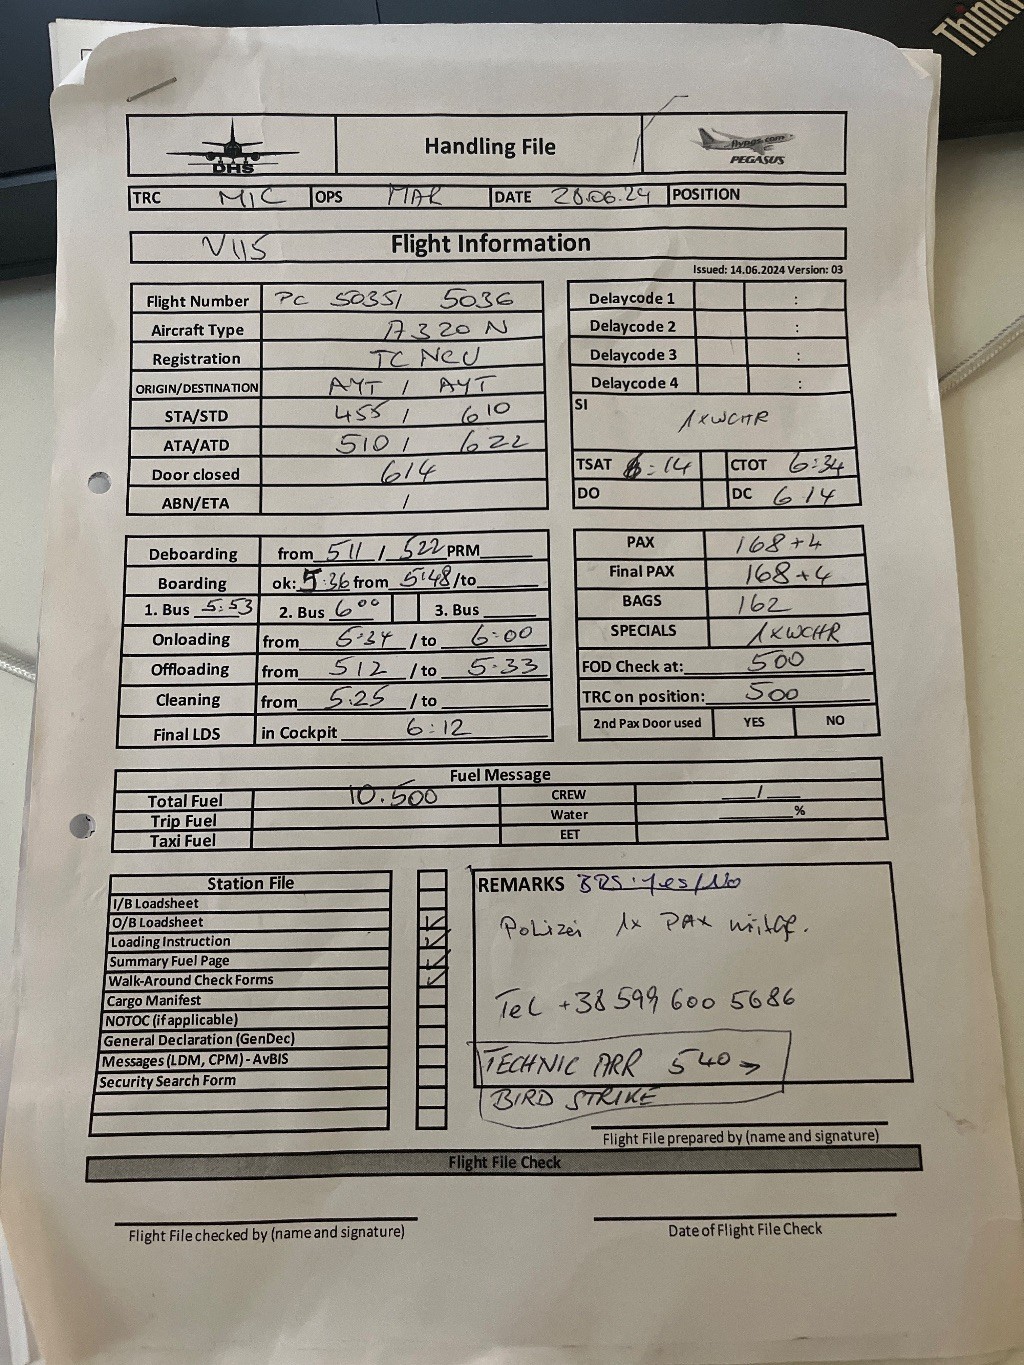 Think
DHS
Handling File
flypgs.com
PEGASUS
TRC MIC OPS MAR DATE 28.06.24 POSITION
V115 Flight Information
Issued: 14.06.2024 Version: 03
Flight Number PC 5035/ 5036
Aircraft Type A320N
Registration TC NCU
ORIGIN/DESTINATION AYT / AYT
STA/STD 455 / 610
ATA/ATD 510 / 622
Door closed 614
ABN/ETA /
Delaycode 1 :
Delaycode 2 :
Delaycode 3 :
Delaycode 4 :
SI
1xWCHR
TSAT 6:14 CTOT 6:34
DO DC 614
Deboarding from 511 / 522 PRM
Boarding ok: 5:36 from 5:48 /to
1. Bus 5:53 2. Bus 6°° 3. Bus
Onloading from 5:34 / to 6:00
Offloading from 512 / to 5:33
Cleaning from 5:25 / to
Final LDS in Cockpit 6:12
PAX 168+4
Final PAX 168+4
BAGS 162
SPECIALS 1xWCHR
FOD Check at: 500
TRC on position: 500
2nd Pax Door used YES NO
Fuel Message
Total Fuel 10.500 CREW /
Trip Fuel Water %
Taxi Fuel EET
Station File
I/B Loadsheet
O/B Loadsheet
Loading Instruction
Summary Fuel Page
Walk-Around Check Forms
Cargo Manifest
NOTOC (if applicable)
General Declaration (GenDec)
Messages (LDM, CPM) - AvBIS
Security Search Form
REMARKS BRS: Yes/No
Polizei 1x PAX
Tel +38 599 600 5686
TECHNIC ARR 540 →
BIRD STRIKE
Flight File prepared by (name and signature)
Flight File Check
Flight File checked by (name and signature)
Date of Flight File Check